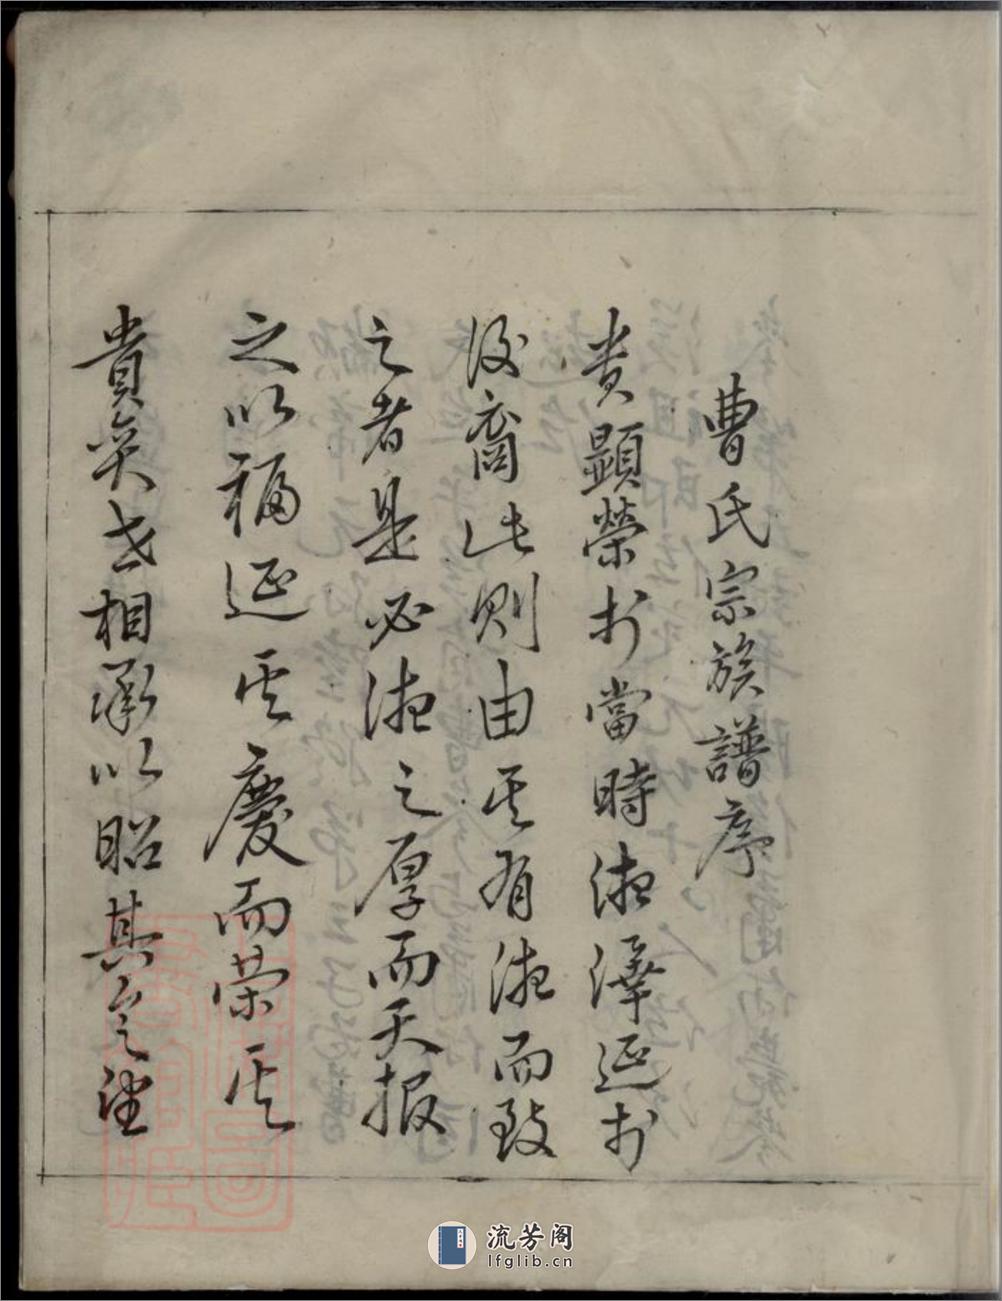 曹氏宗族譜序
貴顯榮於當時德澤延於
後裔此則由其有德而致
之者是必德之厚而天報
之以福延其慶而榮其
貴奕世相承以昭其之望
流芳阁
lfglib.cn